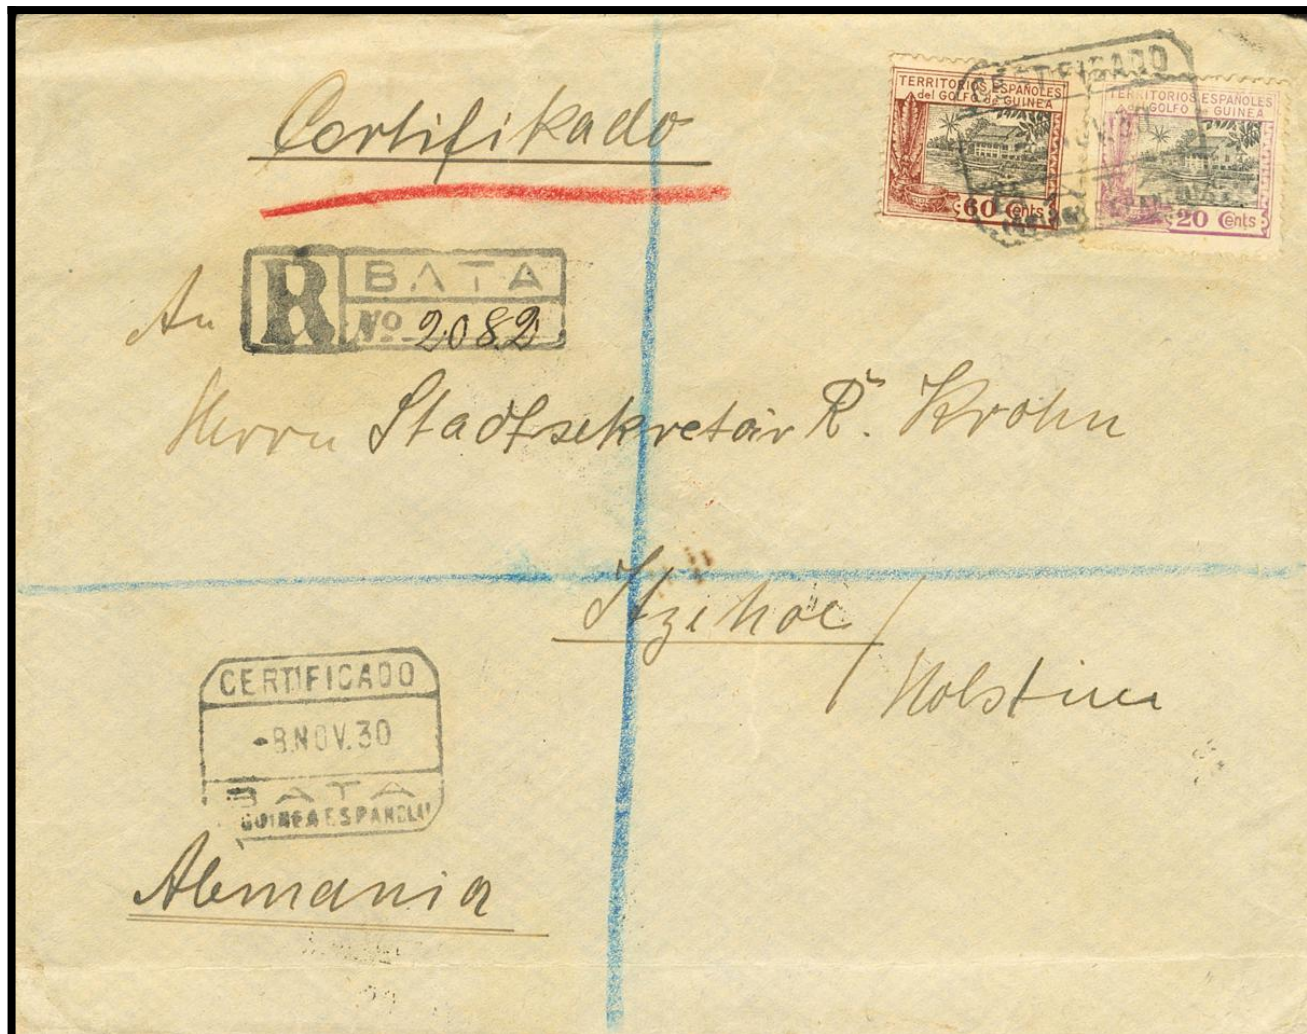 Certifikado
CERTIFICADO
TERRITORIOS ESPAÑOLES
del GOLFO de GUINEA
60 Cents
TERRITORIOS ESPAÑOLES
del GOLFO de GUINEA
20 Cents
R BATA
Nº 2082
An
Herrn Stadtsekretär R. Krohn
Itzehoe /
Holstein
CERTIFICADO
-8.NOV.30
BATA
GUINEA ESPAÑOLA
Alemania